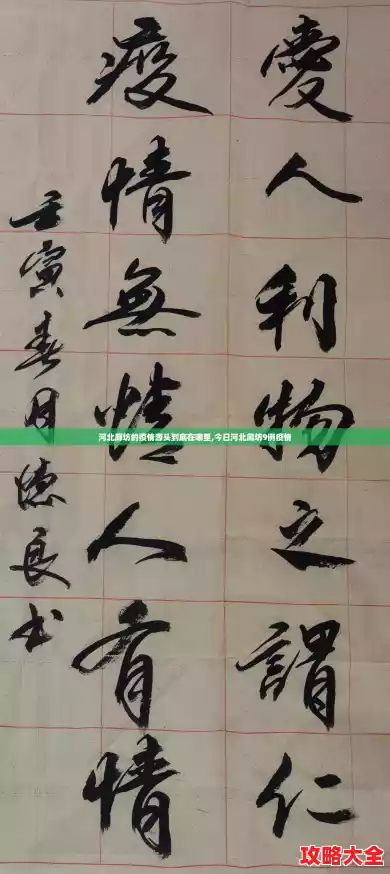 愛人利物之謂仁
疫情無情人有情
壬寅春月德良书
河北廊坊的疫情源头到底在哪里,今日河北廊坊9例疫情
攻略大全